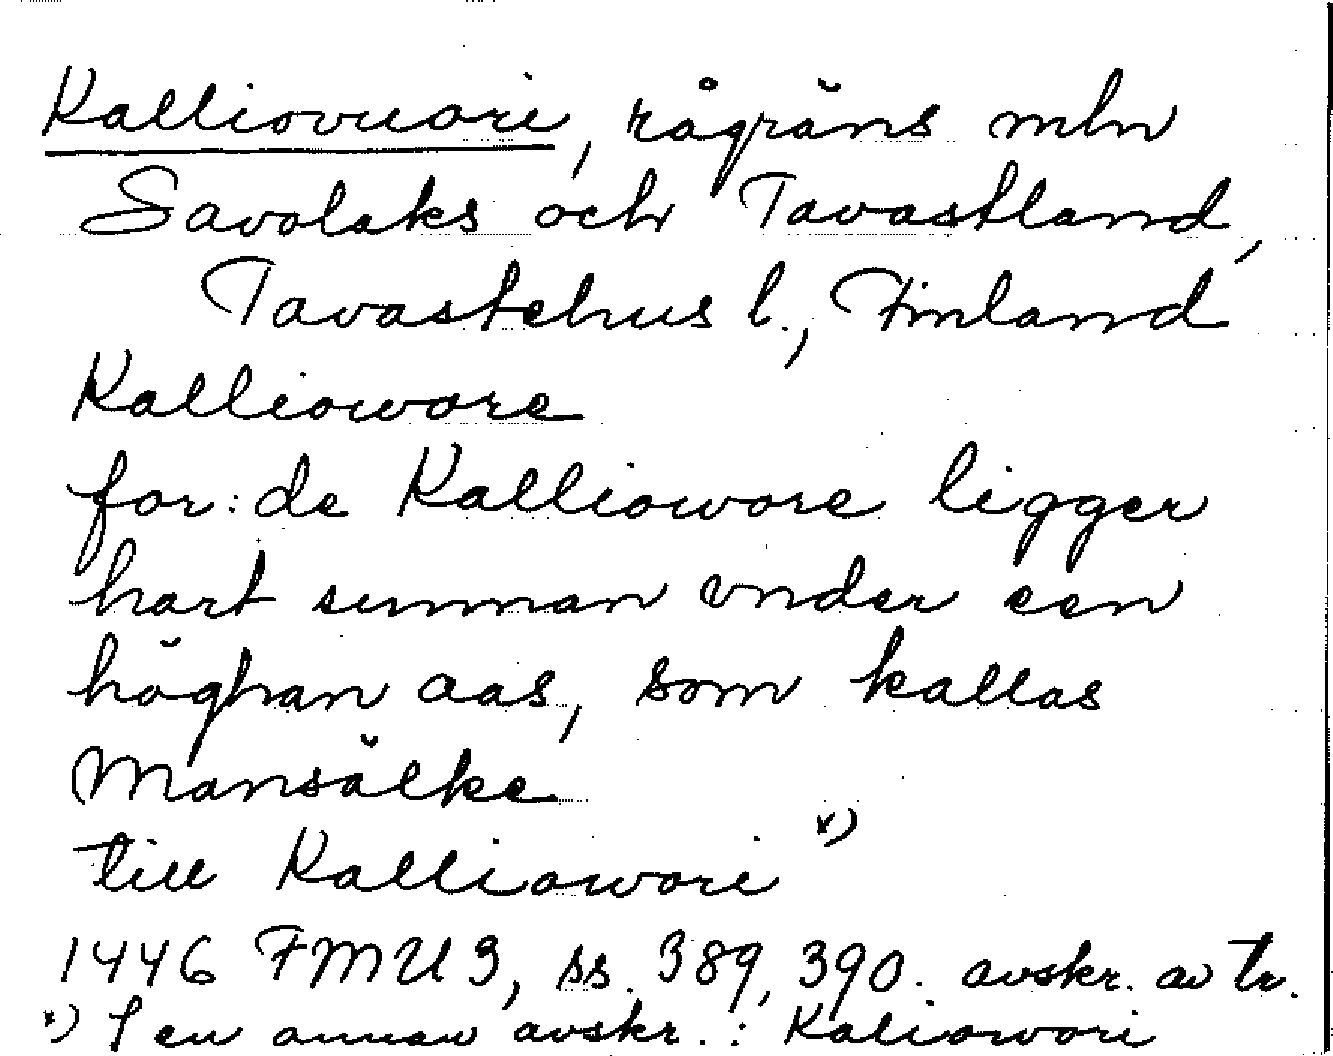 Kalliovuori, rågräns mln
Savolaks och Tavastland,
Tavastehus l., Finland
Kalliowore
for: de Kalliowore ligger
hart sunnan vnder een
höghan aas, som kallas
Mansälke
till Kalliowori *)
1446 FMU 3, ss. 389, 390. avskr. av tr.
*) I en annan avskr.: Kaliowori